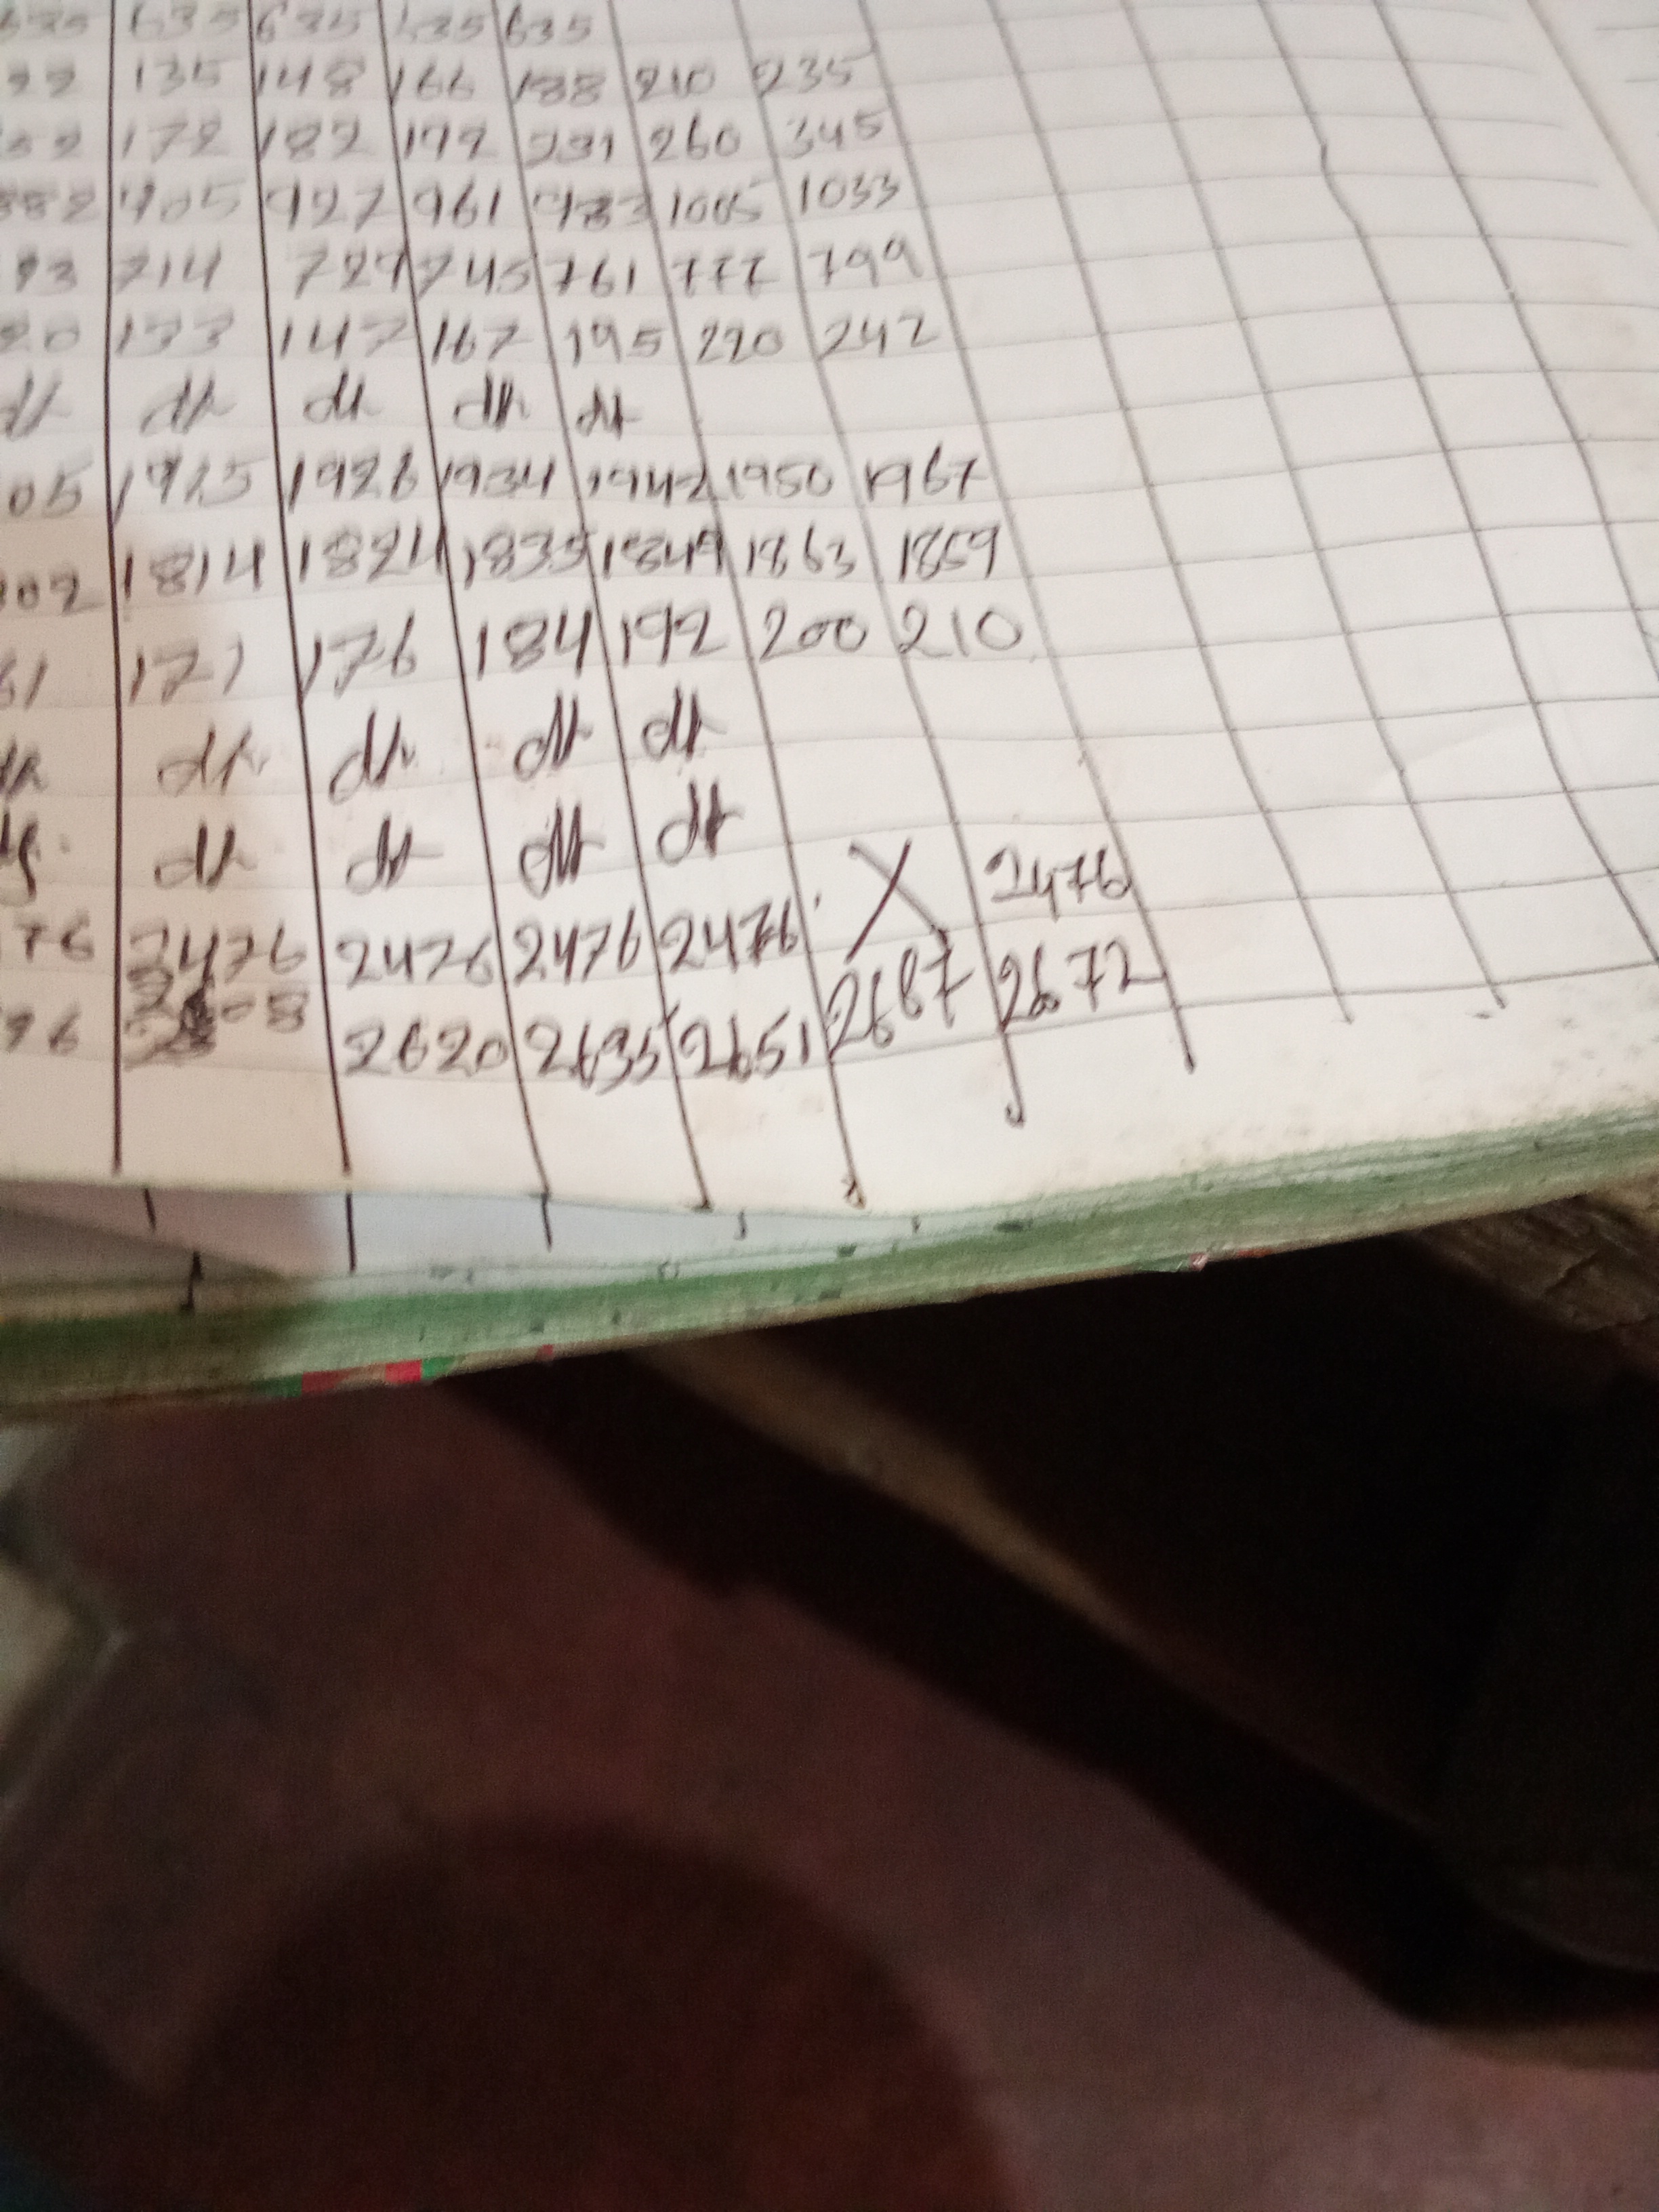 635 635 635 635
135 148 166 188 210 235
172 182 192 231 260 345
882 905 927 961 983 1005 1033
93 714 729 745 761 777 799
20 133 147 167 195 220 242
dh dh dh dh dt
05 1925 1926 1934 1942 1950 1967
802 1814 1824 1835 1849 1863 1859
61 171 176 184 192 200 210
dh dh dh dh dh
dh dh dh dh
76 2476 2476 2476 2476 X 2476
96 2620 2635 2651 2687 2672